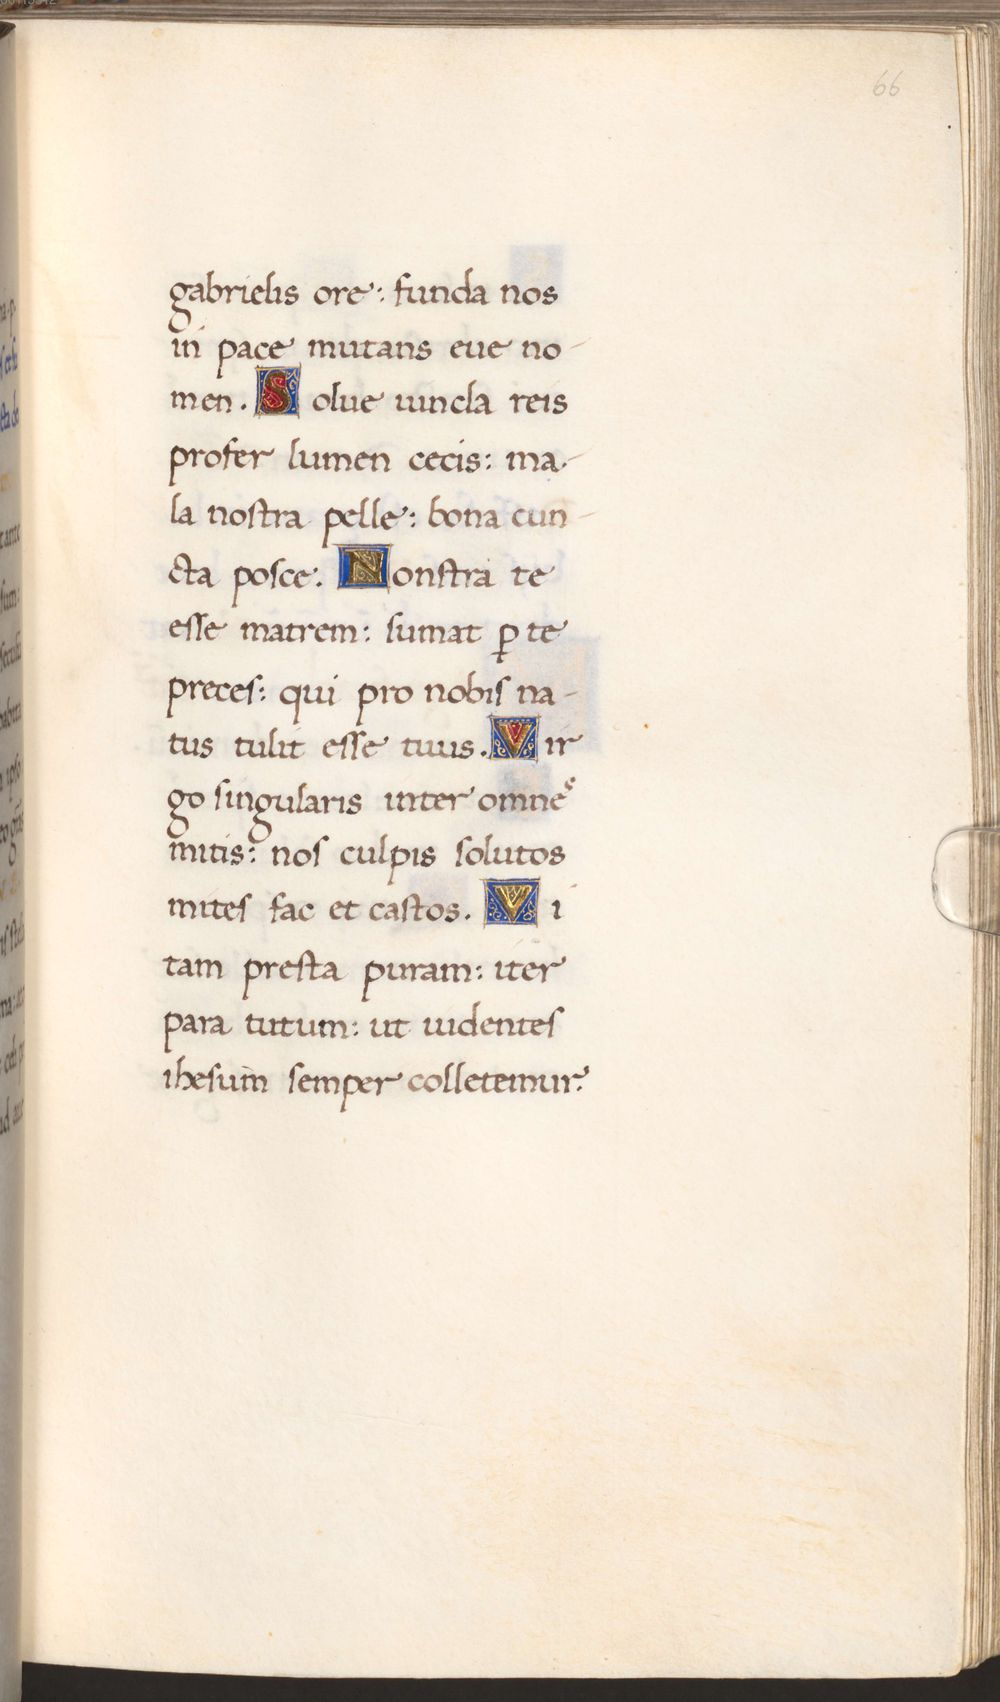 66
gabrielis ore: funda nos
in pace mutans eue no-
men. Solue uincla reis
profer lumen cecis: ma-
la nostra pelle: bona cun-
cta posce. Nonstra te
esse matrem: sumat p̲ te
preces: qui pro nobis na-
tus tulit esse tuus. Vir
go singularis inter omnes
mitis: nos culpis solutos
mites fac et castos. Vi
tam presta puram: iter
para tutum: ut uidentes
ihesum semper colletemur.